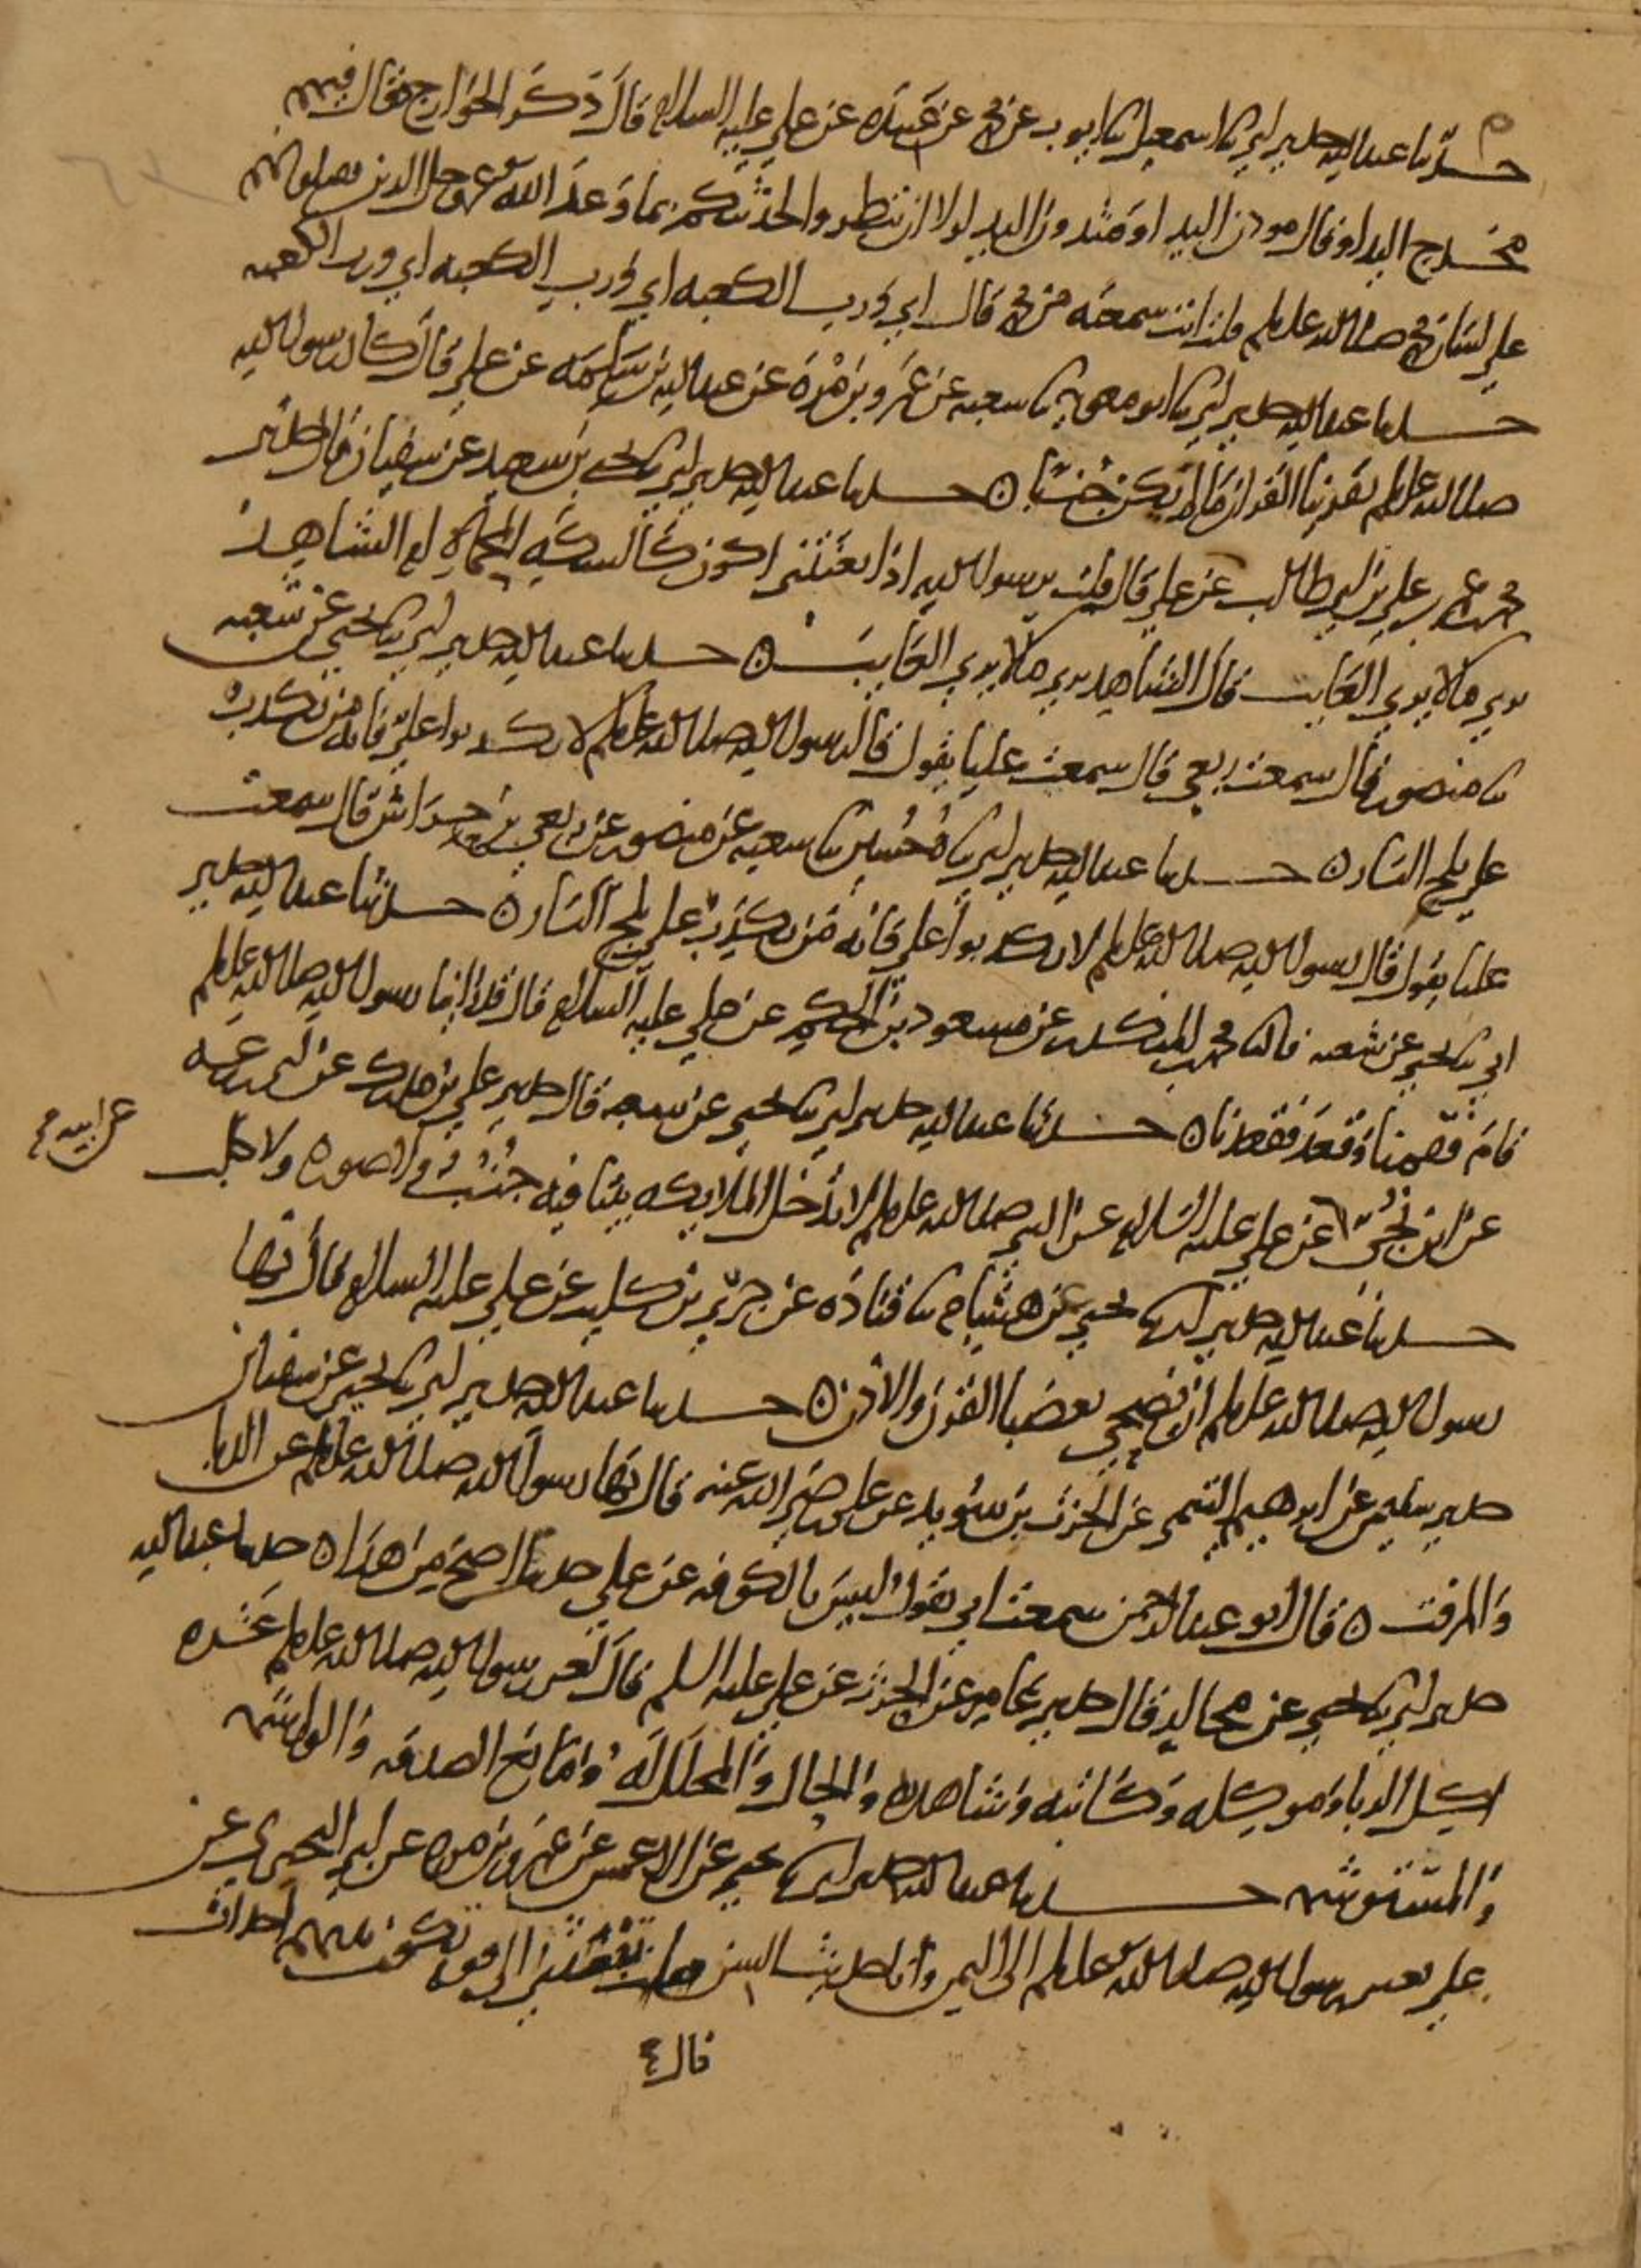 حدثنا عبد الله حدثني ابي نا اسمعيل نا ايوب عن محمد عن عبيدة عن علي عليه السلام قال ذكر الخوارج فقال فيهم
مخدج اليد او قال مودن اليد او مثدون اليد لولا ان تبطروا لحدثتكم بما وعد الله عز وجل الذين يقتلونهم
علي لسان محمد صلى الله عليه وسلم قلت انت سمعته من محمد قال اي ورب الكعبه اي ورب الكعبه اي ورب الكعبه
حدثنا عبد الله حدثني ابي نا ابو معوية نا شعبه عن عمرو بن مرة عن عبد الله بن سلمه عن علي قال كان رسول الله
صلى الله عليه وسلم يقرئنا القران ما لم يكن جنبا ه حدثنا عبد الله حدثني ابي نا يحيى بن سعيد عن سفيان قال حدثني
محمد بن عمر بن علي بن ابي طالب عن علي قال قلت يرسول الله اذا بعثتني اكون كالسكه المحماة ام الشاهد
يري ما لا يري الغايب قال الشاهد يري ما لا يري الغايب ه حدثنا عبد الله حدثني ابي نا يحيى عن شعبه
نا منصور قال سمعت ربعي قال سمعت عليا يقول قال رسول الله صلى الله عليه وسلم لا تكذبوا علي فانه من يكذب
علي يلج النار ه حدثنا عبد الله حدثني ابي نا حسين نا شعبه عن منصور عن ربعي بن حراش قال سمعت
عليا يقول قال رسول الله صلى الله عليه وسلم لا تكذبوا علي فانه من يكذب علي يلج النار ه حدثنا عبد الله حدثني
ابي نا يحيى عن شعبه قال نا محمد بن المنكدر عن مسعود بن الحكم عن علي عليه السلام قال قد راينا رسول الله صلى الله عليه وسلم
قام فقمنا وقعد فقعدنا ه حدثنا عبد الله حدثني ابي نا يحيى عن شعبه قال حدثني علي بن مدرك عن ابي زرعه
عن ابن نجي عن علي عليه السلام عن النبي صلى الله عليه وسلم لا تدخل الملايكه بيتا فيه جنب ولا صورة ولا كلب
عن ابيه
حدثنا عبد الله حدثني ابي نا يحيى عن هشام نا قتاده عن جري بن كليب عن علي عليه السلام قال نها
رسول الله صلى الله عليه وسلم ان نضحي بعضبا القرن والاذن ه حدثنا عبد الله حدثني ابي نا يحيى عن سفيان
حدثني سليمن عن ابرهيم التيمي عن الحرث بن سويد عن علي رضي الله عنه قال نها رسول الله صلى الله عليه وسلم عن الدبا
والمزفت ه قال ابو عبد الرحمن سمعت ابي يقول ليس بالكوفه عن علي حديث اصح من هذا ه حدثنا عبد الله
حدثني ابي نا يحيى عن مجالد قال حدثني عامر عن الحرث عن علي عليه السلم قال لعن رسول الله صلى الله عليه وسلم عشره
اكل الربا وموكله وكاتبه وشاهديه والحال والمحلل له ومانع الصدقه والواشمه
والمستوشمه حدثنا عبد الله حدثني ابي نا يحيى عن الاعمش عن عمرو بن مره عن ابي البختري عن
علي بعثني رسول الله صلى الله عليه وسلم الى اليمن وانا حديث السن قلت تبعثني الى قوم تكون بينهم احداث
قال